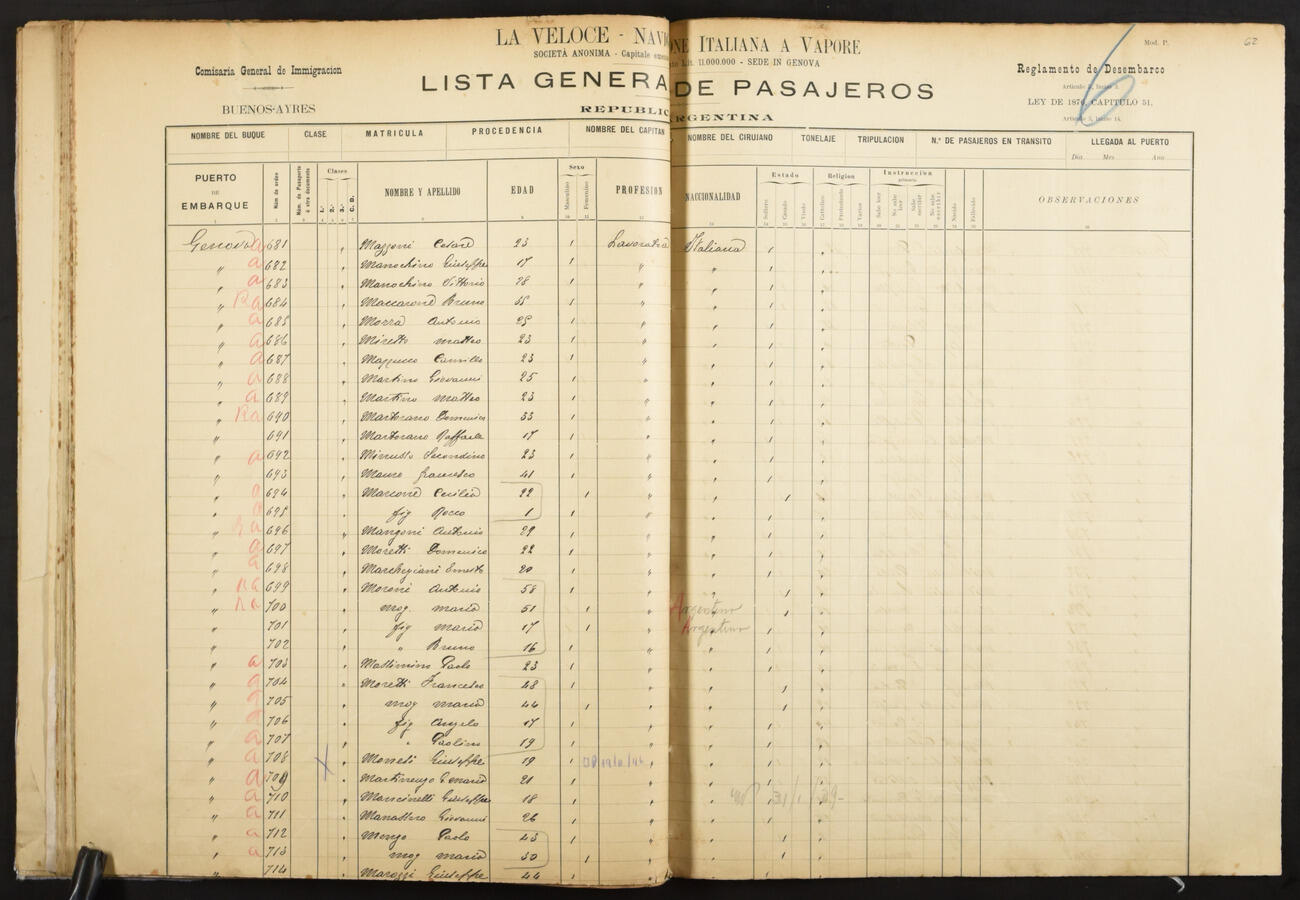 LA VELOCE - NAVI
ONE ITALIANA A VAPORE
SOCIETÀ ANONIMA - Capitale
Lit. 11.000.000 - SEDE IN GENOVA
Mod. P.
62
6
Comisaria General de Immigracion
BUENOS-AYRES
LISTA GENERA DE PASAJEROS
REPUBLIC ARGENTINA
Reglamento de Desembarco
LEY DE 1876, CAPITULO 51.
NOMBRE DEL BUQUE CLASE MATRICULA PROCEDENCIA NOMBRE DEL CAPITAN NOMBRE DEL CIRUJANO TONELAJE TRIPULACION N.º DE PASAJEROS EN TRANSITO LLEGADA AL PUERTO
Dia Mes Ano
PUERTO DE EMBARQUE Núm de orden Núm. de Pasaporte ó otro documento Clases 1.ª 2.ª 3.ª C. D. NOMBRE Y APELLIDO EDAD Sexo Masculino Femenino PROFESION NACCIONALIDAD Estado Soltero Casado Viudo Religion Catolico Protestante Varios Instruccion primaria Sabe leer No sabe leer Sabe escribir No sabe escribir OBSERVACIONES
Genova a 681 Mazzoni Cesare 23 Italiana
" a 682 Manochino Giuseppe 17 "
" a 683 Manochino Vittorio 28 "
" Ra 684 Maccarone Bruno 55 "
" a 685 Morra Antonio 25 "
" a 686 Miretto Matteo 23 "
" a 687 Mazzucco Camillo 23 "
" a 688 Martino Giovanni 25 "
" a 689 Martino Matteo 23 "
" Ra 690 Martorano Domenico 33 "
" 691 Martorano Raffaele 17 "
" a 692 Secondino 23 "
" 693 Mauro Francesco 41 "
" a 694 Marcone Cecilia 22 "
" a 695 fig Rocco 1 "
" Ra 696 Mangoni Antonio 29 "
" a 697 Moretti Domenico 22 "
" a 698 Marchegiani Ernesto 20 "
" Ra 699 Moroni Antonio 58 "
" Ra 700 mog Maria 51 " Argentino
" 701 fig Maria 17 " Argentino
" 702 " Bruno 16 "
" a 703 Massimino Paolo 23 "
" a 704 Moretti Francesco 48 "
" a 705 mog Maria 44 "
" a 706 fig Angelo 17 "
" a 707 " Paolino 19 "
" a 708 Giuseppe 19 "
" a 709 Martinengo 21 "
" a 710 Mancinelli Giuseppe 18 "
" a 711 Manassero Giovanni 26 "
" a 712 Paolo 43 "
" a 713 mog Maria 30 "
" 714 Marozzi Giuseppe 44